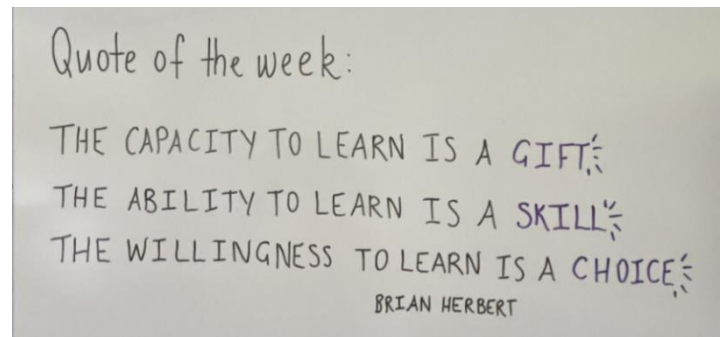 Quote of the week:
THE CAPACITY TO LEARN IS A GIFT
THE ABILITY TO LEARN IS A SKILL
THE WILLINGNESS TO LEARN IS A CHOICE
BRIAN HERBERT